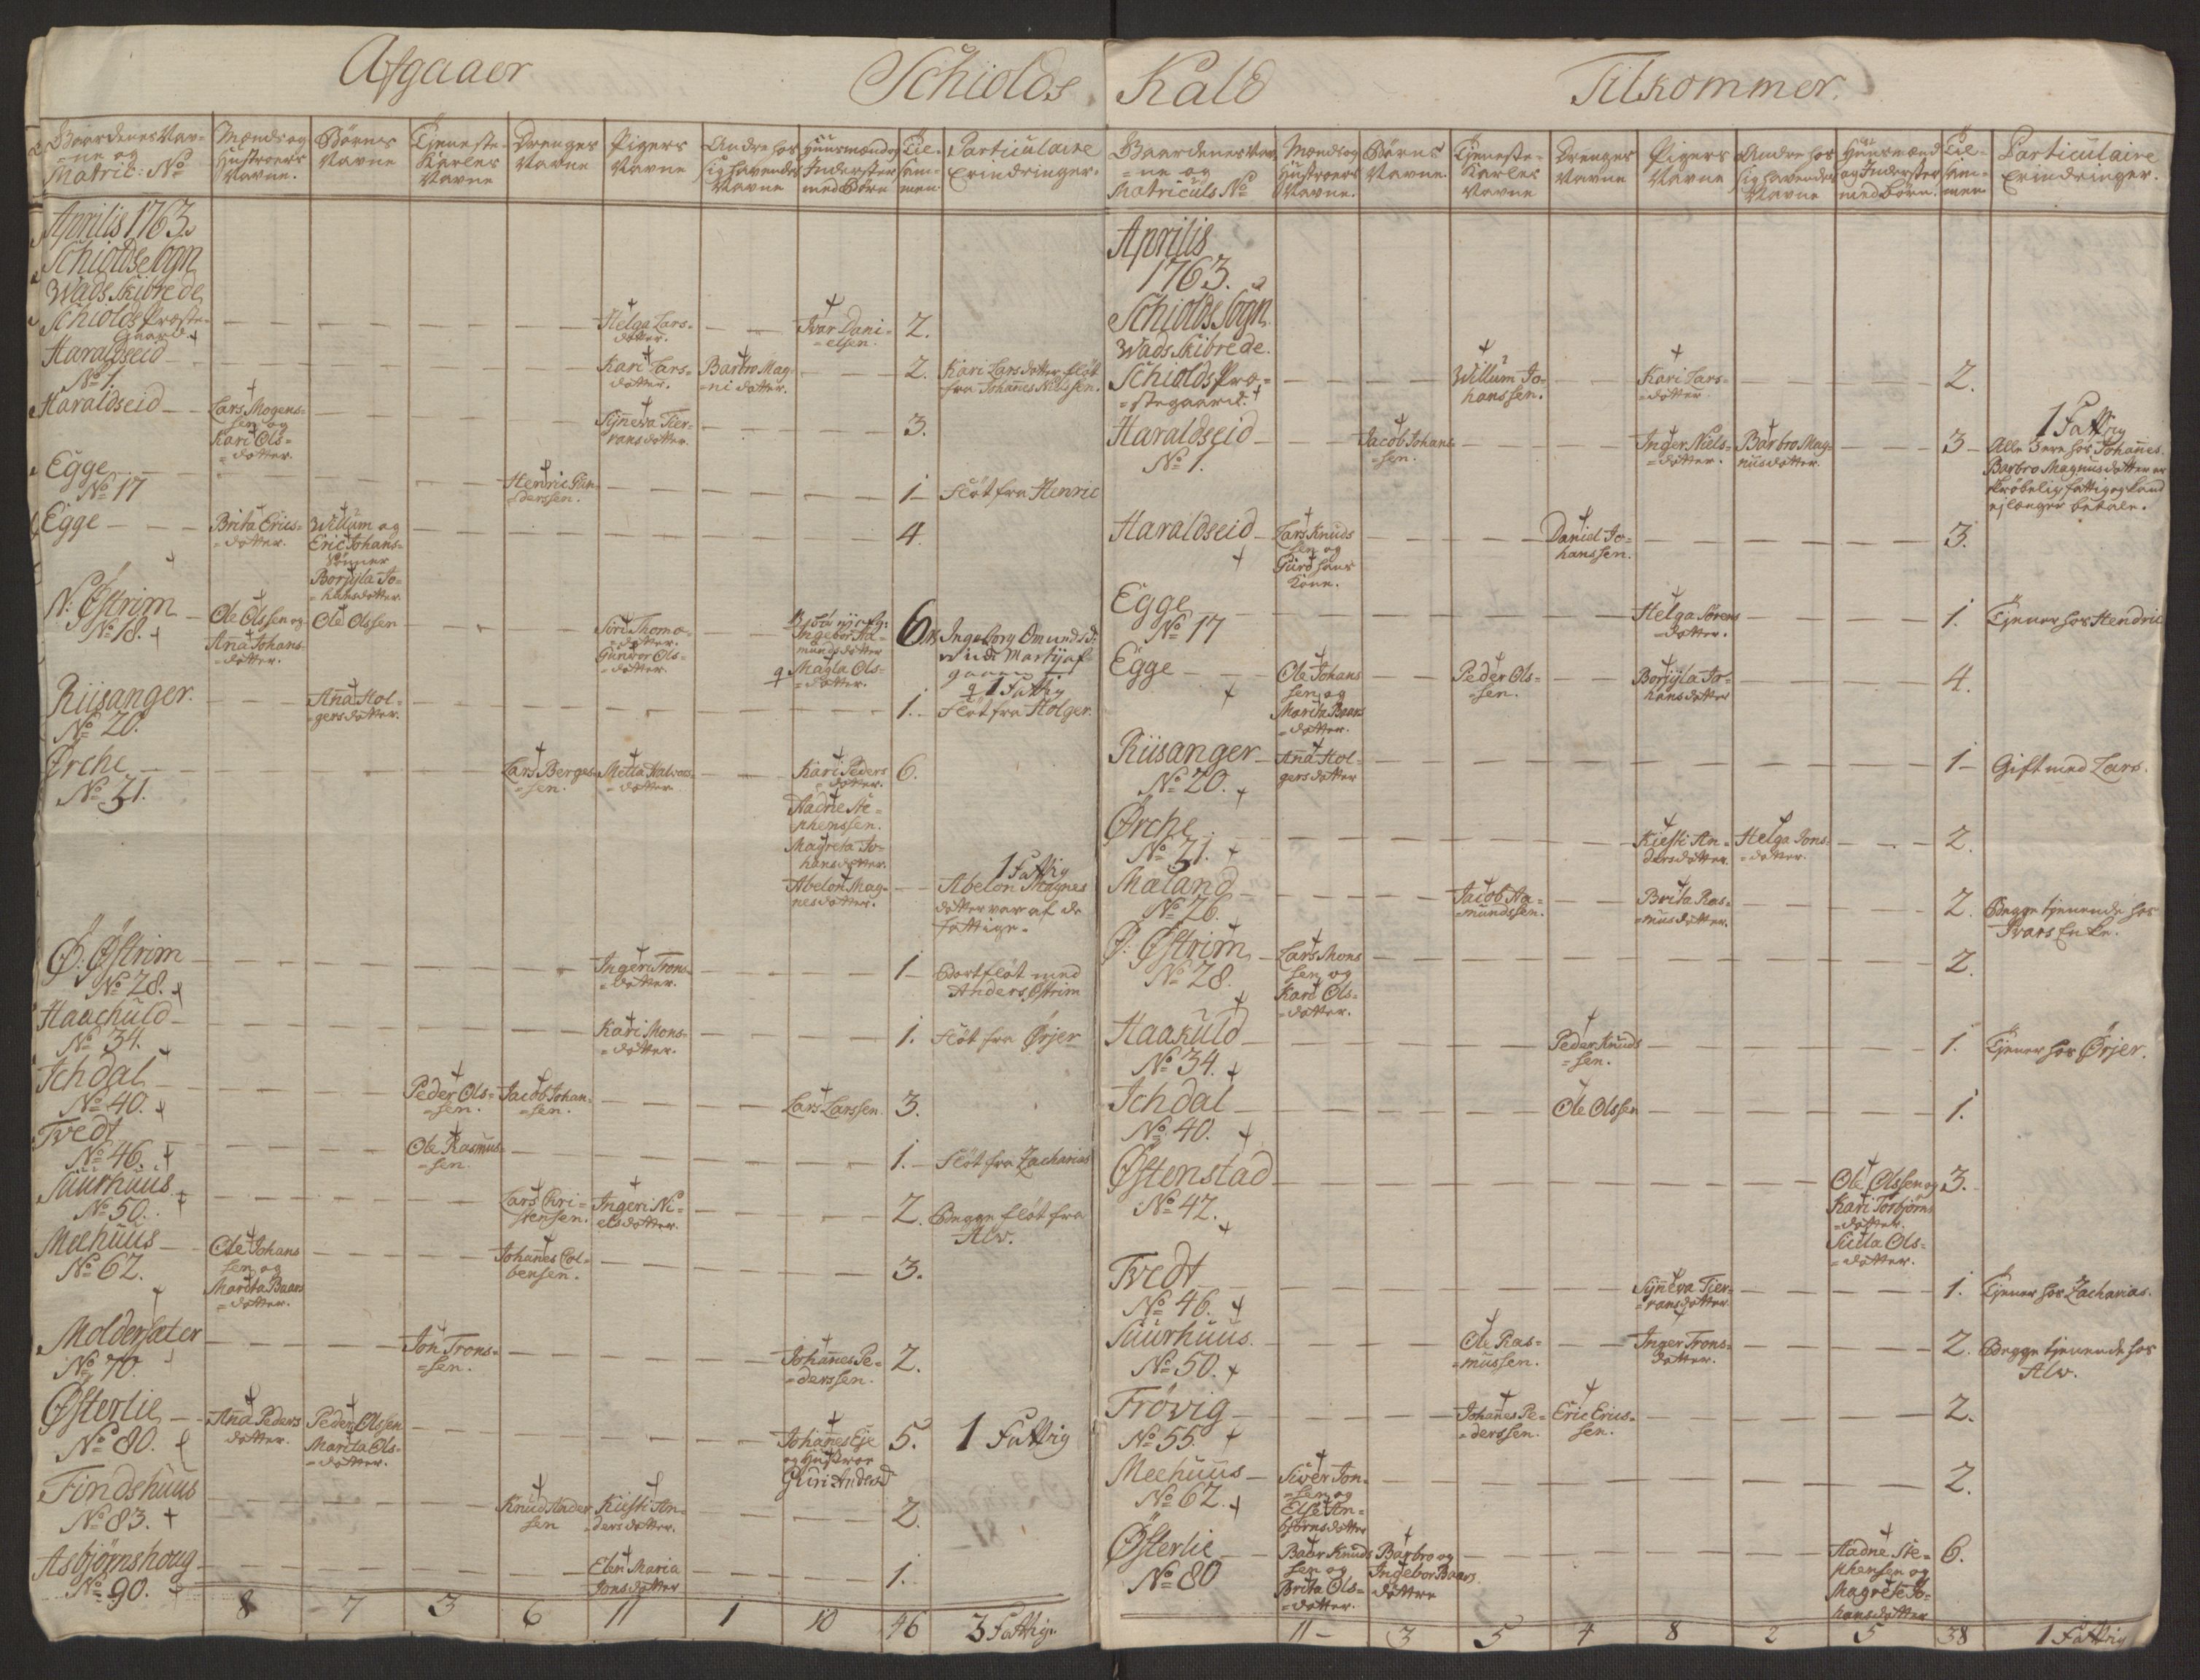 Afgaaer
Schiolds
Gaardenes Nav-
=ne og
Matric: No
Mænds og
Hustroers
Navne.
Børnes
Navne
Tjeneste
Karles
Navne
Drenges
Navne
Pigers
Navne
Andre hos
sig havendes
Navne
Huusmænd og
Inderster
med Børn
Til-
sam-
men
Particulaire
Erindringer.
Aprilis 1763.
Schiolds Sogn
Wads Skibrede
Schiolds Præste-
gaard.
Helga Lars-
dotter.
Ivar Dani-
=elsen.
2.
Haraldseid
No 1.
Kari Lars-
dotter.
Barbro Mag-
=ni dotter.
2.
Kari Larsdotter fløt
fra Johanes Nielssen.
Haraldseid
Lars Mogens-
sen og
Kari Ols-
=dotter.
Synneva Tier-
=ransdotter.
3.
Egge
No 17
Henric Gun-
derssen.
1
Fløt fra Henric
Egge
Brita Erics-
=dotter.
Willum og
Eric Johans-
Sønner
Borgyla Jo-
=hansdotter
4.
N: Østrim
No 18.
Ole Olssen og
Anna Johans-
=dotter.
Ole Olssen
Siri Thomo-
=dotter.
Gunvor Ols-
=dotter.
Ingebor Aa-
mundsdotter
Magla Ols-
=dotter.
6
Ingeborg Omundsd:
1 Fattig
Riisanger.
No 20.
Anna Hol-
=gersdotter.
1.
Fløt fra Holger.
Ørche
No 21.
Lars Berges-
=sen.
Metta Halvors-
=dotter
Kari Peders
=dotter.
Aadne Ste-
=phenssen.
Magreta Jo-
hansdotter.
Abelon Mag-
nesdotter.
6.
1 Fattig
Abelon Magnes
dotter var af de
fattige.
Ø: Østrim
No 28.
Ingeri Trons-
=dotter.
1
Bortfløt med
Anders Østrim
Haachuld
No 34.
Kari Mons-
=dotter.
1.
Fløt fra Ørjer
Ichdal
No 40.
Peder Ols-
=sen.
Jacob Johan-
=sen.
Lars Larssen.
3.
Tvedt
No 46.
Ole Rasmus-
=sen.
1.
Fløt fra Zacharias
Suurhuus
No 50.
Lars Chri-
stensen.
Ingeri Ni-
elsdotter.
2.
Begge fløt fra
Alv.
Meehuus
No 62.
Ole Johans
sen og
Marita Baars
=dotter.
Johanes Col-
bensen.
3.
Moldersæter
No 70.
Jon Trons-
=sen.
Johanes Pe-
=derssen.
2.
Østerlie
No 80.
Anna Peders
dotter.
Peder Olssen
Marita Ols-
=dotter.
Johanes Eje
og Hustroe
Guri Andersd
5.
1 Fattig
Findshuus
No 83.
Knud Ander
sen
Kiesti An-
dersdotter.
2.
Asbjørnshoug
No 90.
Elen Maria
Jonsdotter
1.
8 7 3 6 11 1 10 46 3 Fattig.
Kald
Tilkommer.
Gaardenes Nav
=ne og
Matriculs No
Mænds og
Hustroers
Navne.
Børns
Navne.
Tjeneste-
Karles
Navne
Drenges
Navne
Pigers
Navne
Andre hos
sig havendes
Navne
Huusmænd
og Inderster
med Børn.
Til-
sam-
men
Particulaire
Erindringer.
Aprilis
1763.
Schiolds Sogn.
Wads Skibrede.
Schiolds Præ-
=stegaard.
Willum Jo-
hanssen.
Kari Lars-
=dotter
2.
Haraldseid
No 1.
Jacob Johans-
=sen.
Inger Niels-
=dotter.
Barbro Mag-
nusdotter.
3
1 Fattig
Alle 3 ere hos Johanes.
Barbro Magnusdotter er
skrøbelig fattig og kand
ej længer betale.
Haraldseid
Lars Knuds
sen og
Gurd hans
Kone.
Daniel Jo-
hanssen.
3.
Egge
No 17
Helga Sørens
=dotter.
1.
Tjener hos Hendric
Egge
Ole Johans
sen og
Marita Baars
=dotter.
Peder Ols-
=sen.
Borgyla Jo-
hansdotter
4.
Riisanger
No 20.
Anna Hol-
gersdotter
1
Gift med Lars.
Ørche
No 21.
Kiesti An-
dersdotter.
Helga Jons-
=dotter.
2.
Mæland
No 26.
Jacob Aa-
=mundssen.
Brita Ras-
=musdotter.
2.
Begge tjenende hos
Ivars Enke.
Ø: Østrim
No 28.
Lars Mons
sen og
Kari Ols-
=dotter.
2.
Haakuld
No 34.
Peder Knuds
=sen.
1.
Tjener hos Ørjer.
Ichdal
No 40.
Ole Olssen
1.
Østenstad
No 42.
Ole Olssen og
Kari Torbjørns
=dotter.
Siilla Ols-
=dotter.
3.
Tvedt
No 46.
Synneva Tier-
=ransdotter
1.
Tjener hos Zacharias.
Suurhuus.
No 50.
Ole Ras-
=mussen.
Inger Trons-
dotter.
2.
Begge tjenende hos
Alv.
Frøvig
No 55.
Johanes Pe-
=derssen.
Eric Erics-
sen.
2.
Meehuus
No 62.
Siver Jon-
=sen og
Else An-
bjørnsdotter
2.
Østerlie
No 80
Baar Knuds
sen og
Brita Ols-
=dotter.
Barbro og
Ingebor Baars
døttre
Aadne Ste-
phensen og
Magrete Jo-
hansdotter
6.
11 3 5 4 8 2 5 38 1 Fattig